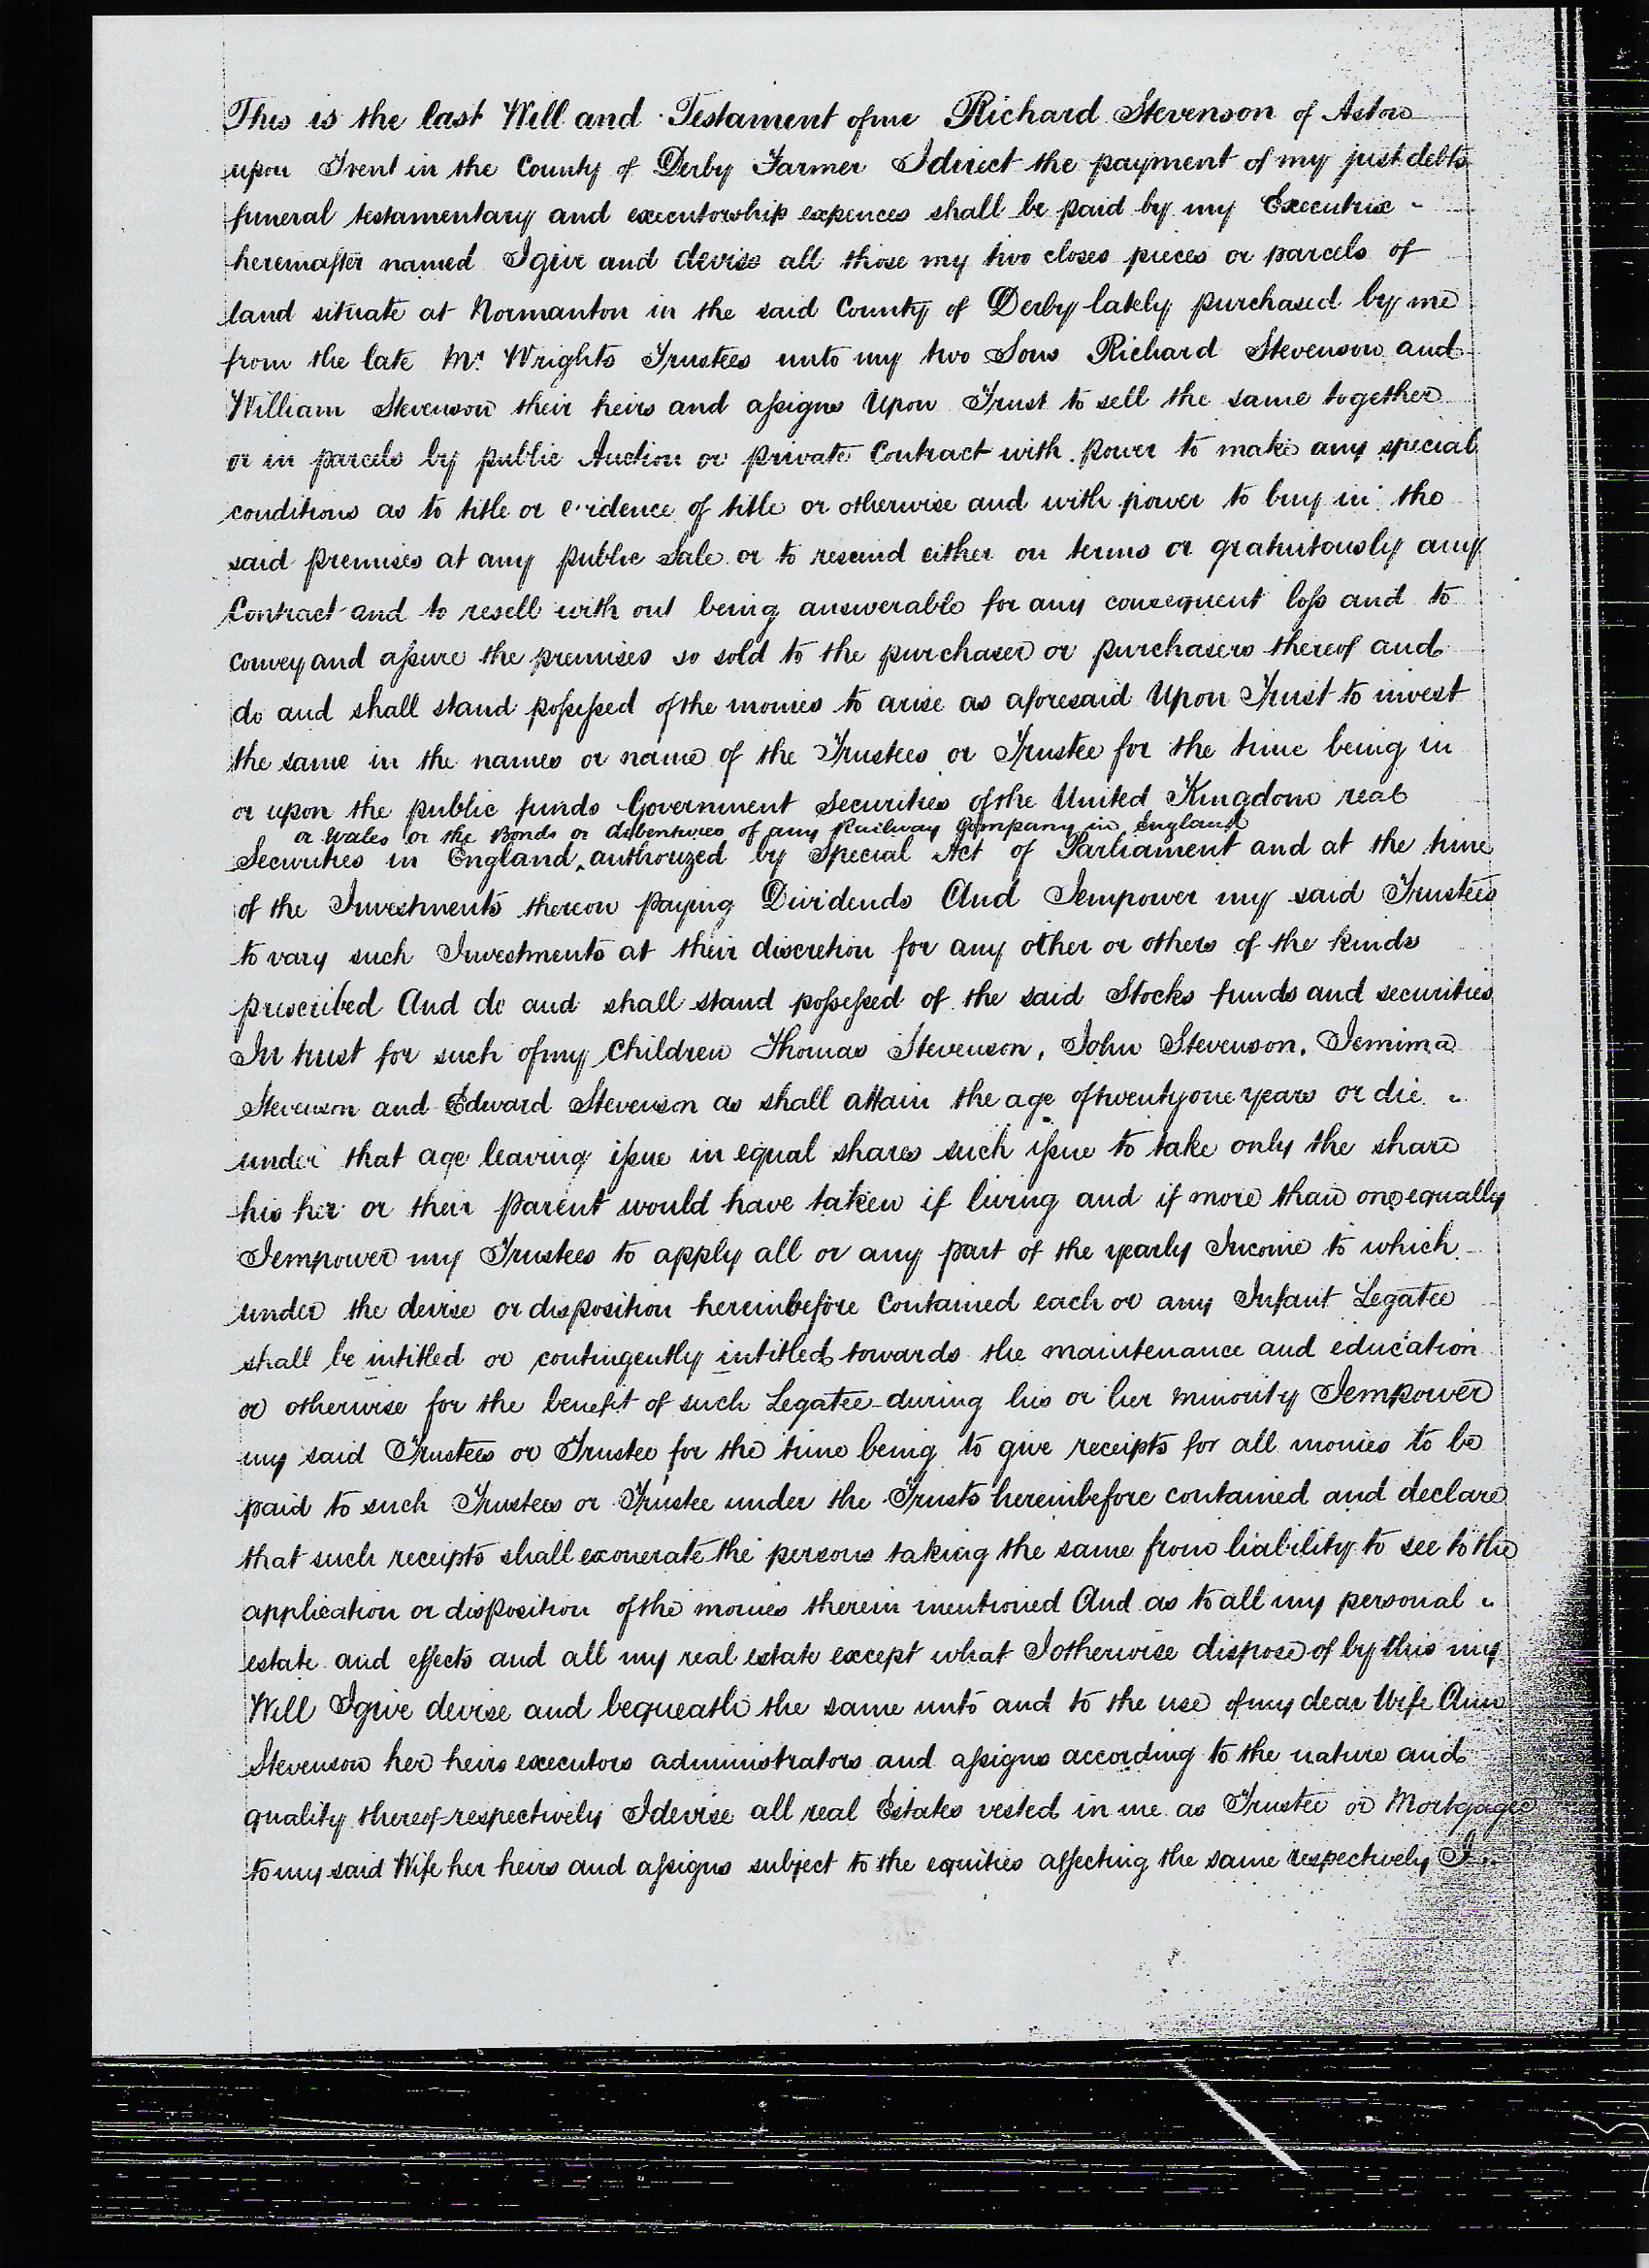 This is the last Will and Testament of me Richard Stevenson of Aston
upon Trent in the County of Derby Farmer I direct the payment of my just debts
funeral testamentary and executorship expences shall be paid by my Executrix
hereinafter named I give and devise all those my two closes pieces or parcels of
land situate at Normanton in the said County of Derby lately purchased by me
from the late Mr. Wrights Trustees unto my two Sons Richard Stevenson and
William Stevenson their heirs and assigns Upon Trust to sell the same together
or in parcels by public Auction or private Contract with power to make any special
conditions as to title or evidence of title or otherwise and with power to buy in the
said premises at any public Sale or to rescind either on terms or gratuitously any
Contract and to resell with out being answerable for any consequent loss and to
convey and assure the premises so sold to the purchaser or purchasers thereof and
do and shall stand possessed of the monies to arise as aforesaid Upon Trust to invest
the same in the names or name of the Trustees or Trustee for the time being in
or upon the public funds Government Securities of the United Kingdom real
or Wales or the Bonds or debentures of any Railway Company in England
Securities in England authorized by Special Act of Parliament and at the time
of the Investments thereon paying Dividends And I empower my said Trustees
to vary such Investments at their discretion for any other or others of the kinds
prescribed And do and shall stand possessed of the said Stocks funds and securities
In trust for such of my Children Thomas Stevenson, John Stevenson, Jemima
Stevenson and Edward Stevenson as shall attain the age of twenty one years or die
under that age leaving issue in equal shares such issue to take only the share
his her or their parent would have taken if living and if more than one equally
I empower my Trustees to apply all or any part of the yearly Income to which
under the devise or disposition hereinbefore Contained each or any Infant Legatee
shall be intitled or contingently intitled towards the maintenance and education
or otherwise for the benefit of such Legatee during his or her minority I empower
my said Trustees or Trustee for the time being to give receipts for all monies to be
paid to such Trustees or Trustee under the Trusts hereinbefore contained and declare
that such receipts shall exonerate the persons taking the same from liability to see to the
application or disposition of the monies therein mentioned And as to all my personal
estate and effects and all my real estate except what I otherwise dispose of by this my
Will I give devise and bequeath the same unto and to the use of my dear Wife Ann
Stevenson her heirs executors administrators and assigns according to the nature and
quality thereof respectively I devise all real Estates vested in me as Trustee or Mortgagee
to my said Wife her heirs and assigns subject to the equities affecting the same respectively I